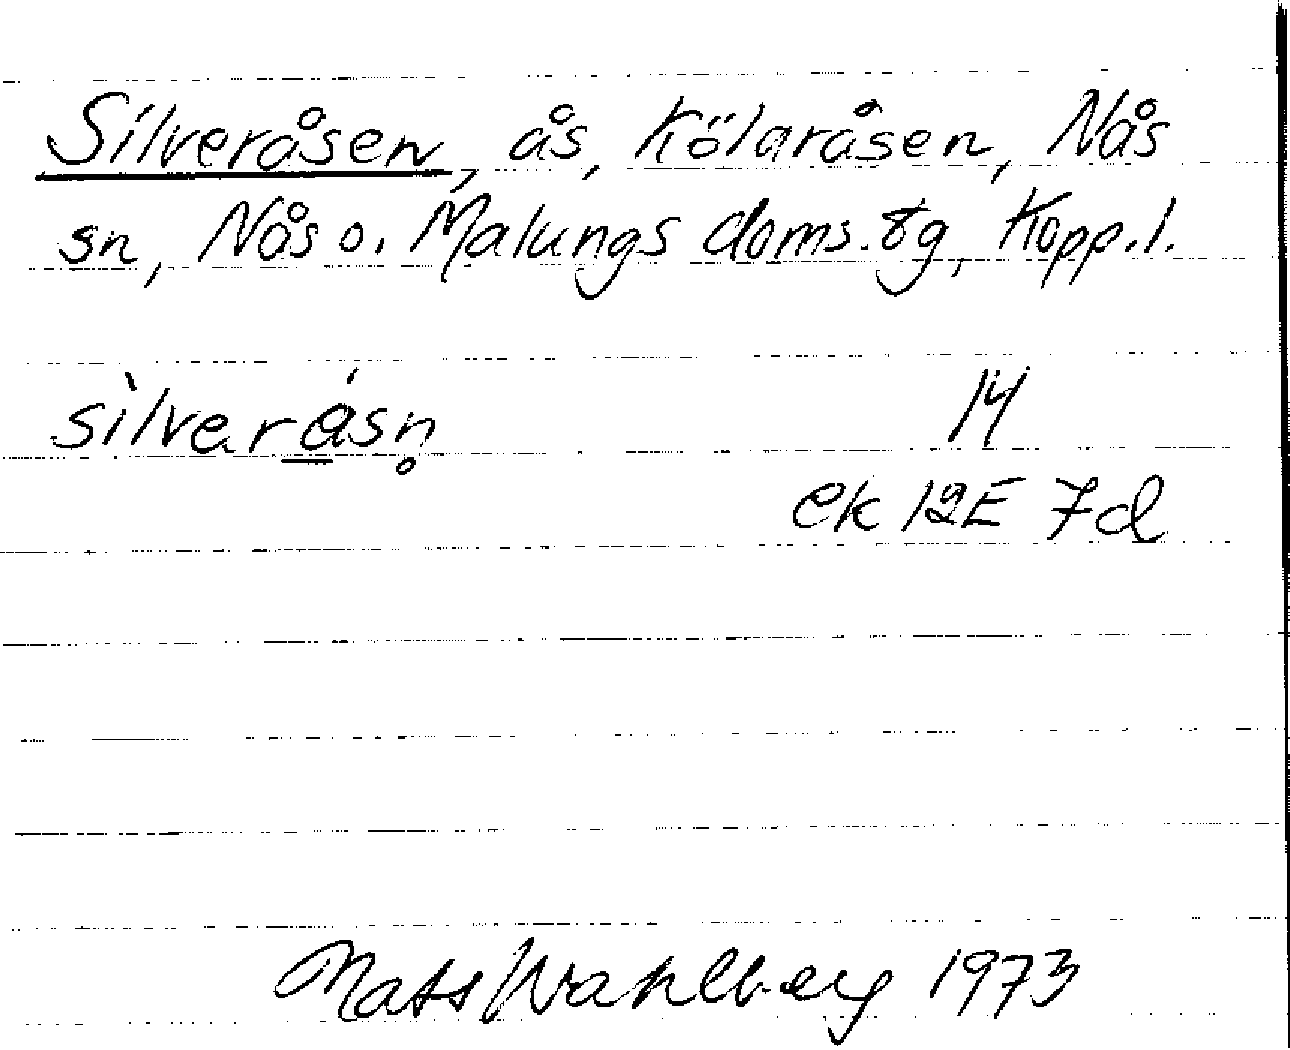 Silveråsen, ås, Kölaråsen, Nås
sn, Nås o. Malungs doms.tg, Kopp.l.
sìlveråsn̥ 14
ek 12E 7d
Mats Wahlberg 1973